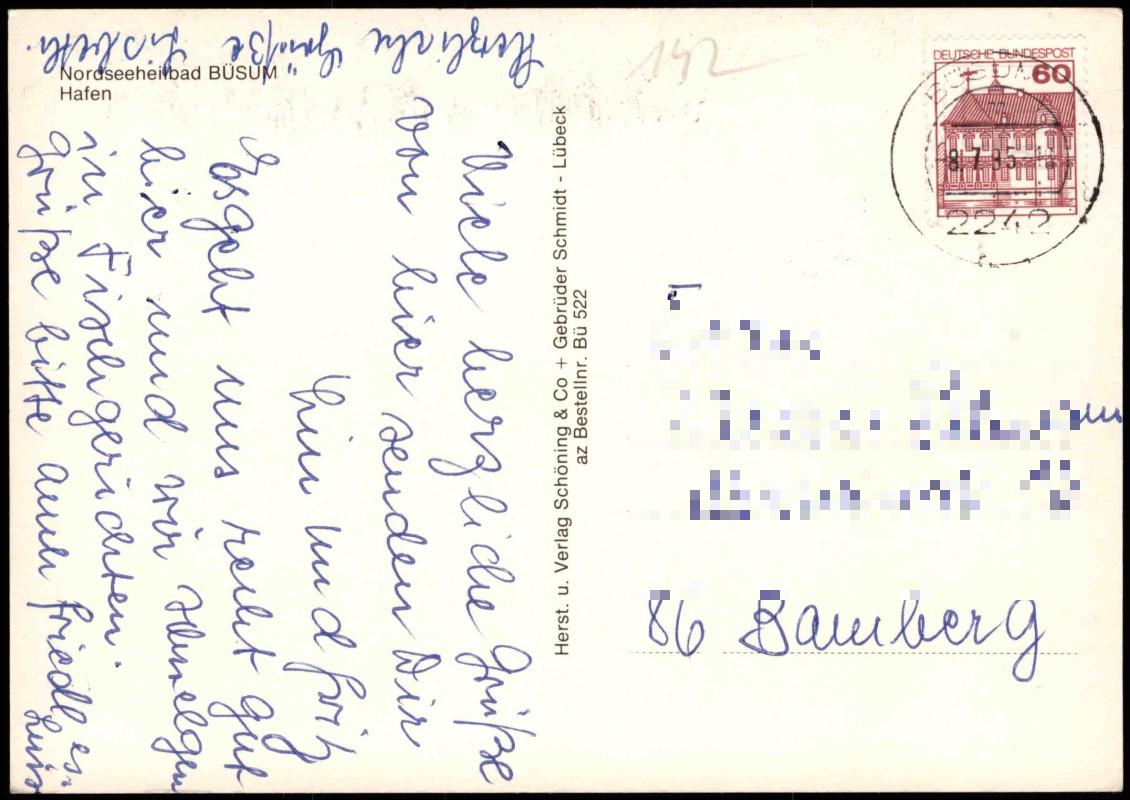 Nordseeheilbad BÜSUM
Hafen
Viele herzliche Grüße
von hier senden Dir
und Fritz
Es geht uns recht gut
hier und wir schwelgen
in Fischgerichten.
Grüße bitte auch Friedl
Herzliche Grüße
Herst. u. Verlag Schöning & Co + Gebrüder Schmidt - Lübeck
az Bestellnr. Bü 522
142
DEUTSCHE BUNDESPOST
60
BÜSUM
8.7.85
2242
86 Bamberg